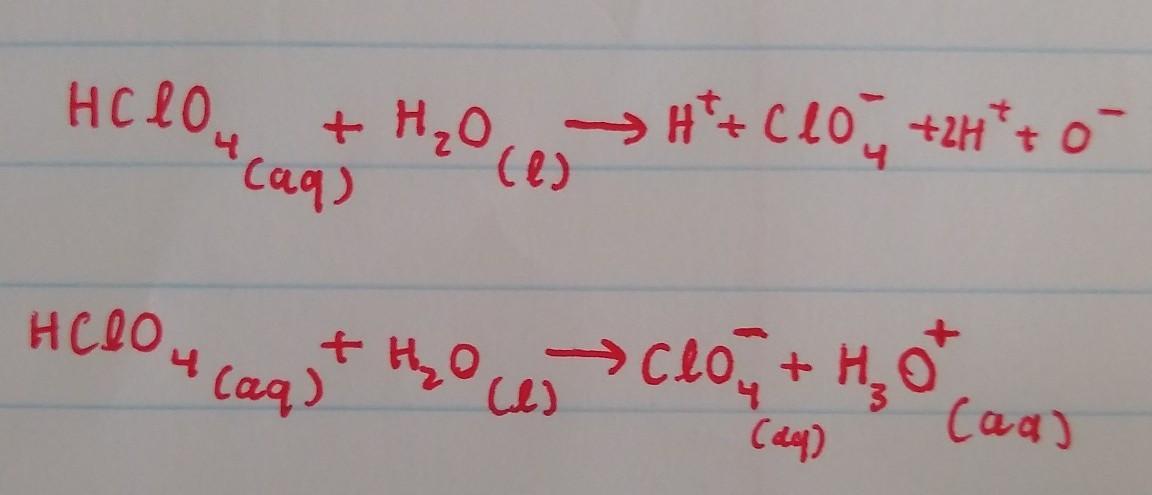 HClO₄(aq) + H₂O(l) → H⁺ + ClO₄⁻ + 2H⁺ + O⁻
HClO₄(aq) + H₂O(l) → ClO₄⁻(aq) + H₃O⁺(aq)